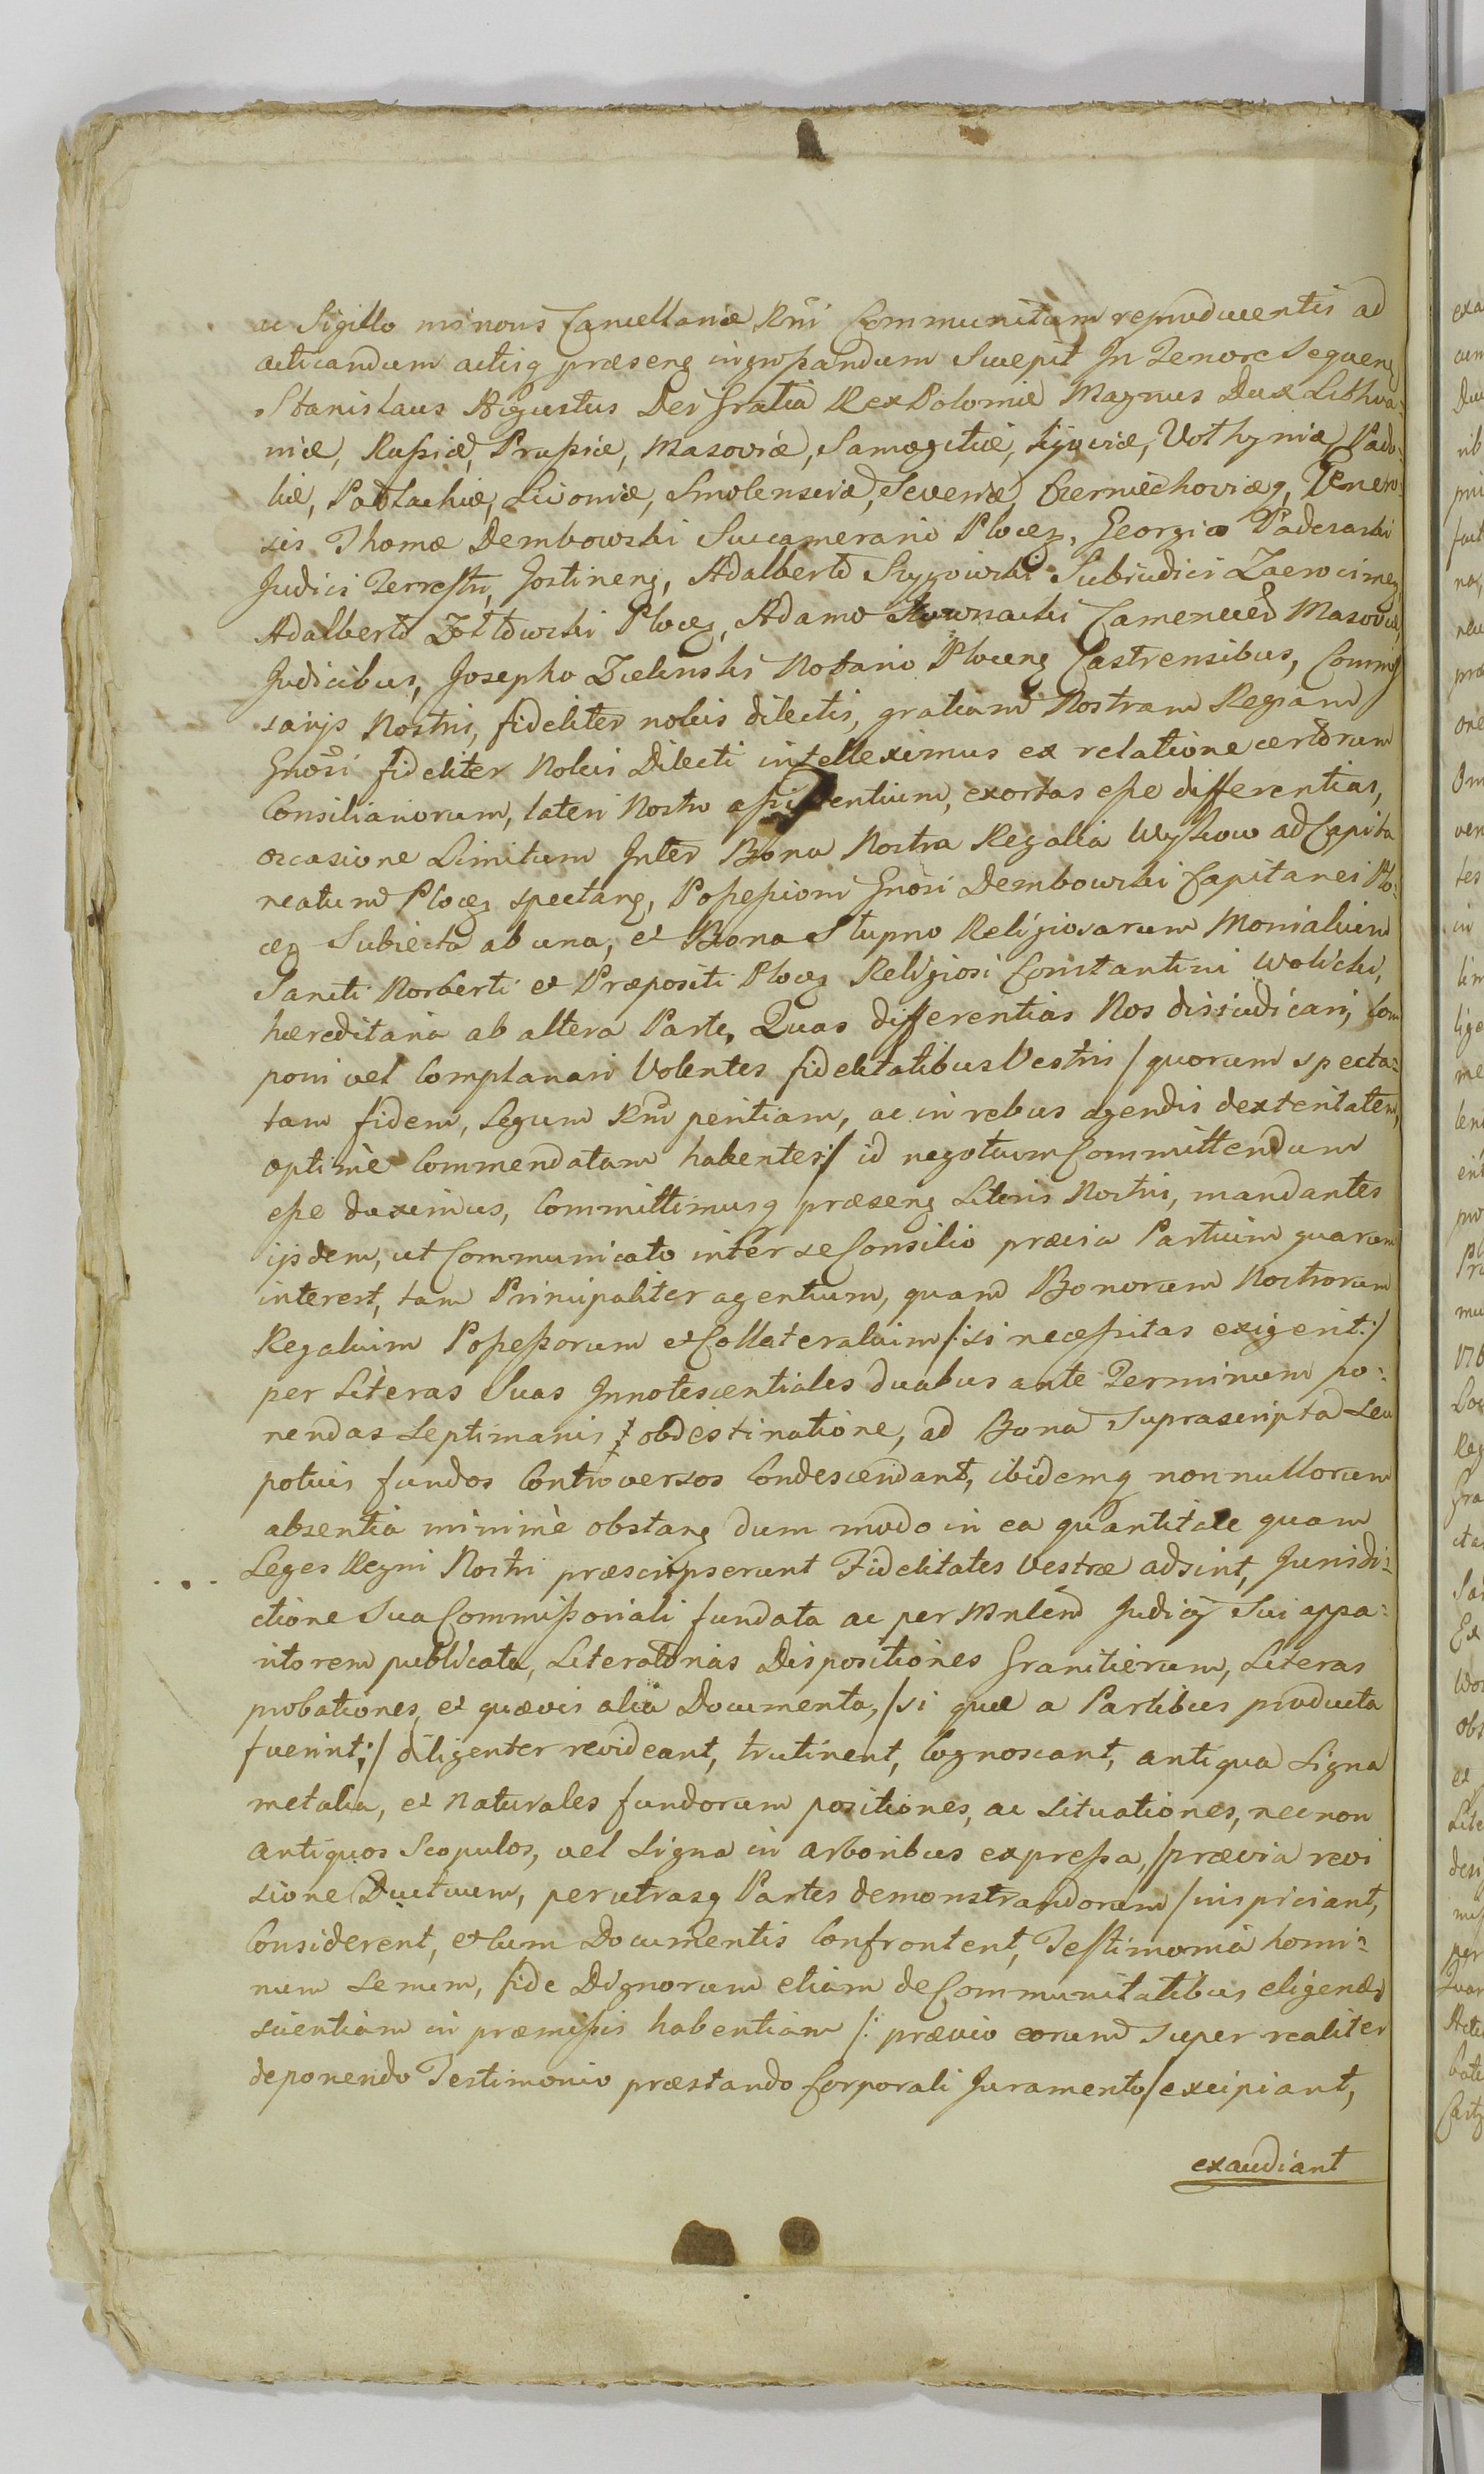 ac Sigillo minoris Cancellariæ Rni Communitam reproducentis ad
acticandum actisq præseng ingrossandum Suscepit In Tenore Sequeng
Stanislaus Augustus Dei Gratia Rex Poloniæ Magnus Dux Lithva=
niæ, Russiæ, Prussiæ, Masoviæ, Samogitiæ, Kijoviæ, Volhyniæ, Podo=
liæ, Podlachiæ, Livoniæ, Smolensciæ, Severiæ, Czerniechoviæq, Genero=
sis Thomæ Dembowski Succamerario Ploceg, Georgio Paderaski
Judici Terrestri, Gostineng, Adalberto Szygowski Subiudici Zaewcimeg
Adalberto Żółtowski Ploceg, Adamo Kownacki Camenecen Masoviæ,
Judicibus, Josepho Zielinski Notario Ploceng Castrensibus, Commis
sarijs Nostris, fideliter nobis dilectis, gratiam Nostram Regiam
Gnosi fideliter Nobis Dilecti intelleximus ex relatione certorum
Consiliariorum, lateri Nostro assidentium, exortas esse differentias,
occasione Limitum Inter Bona Nostra Regalia Wyszow ad Capita
neatum Ploceg spectang, Possessioni Gnosi Dembowski Capitanei Plo=
ceg Subiecta ab una, et Bona Slupno Religiosarum Monialium
Sancti Norberti et Præpositi Ploceg Religiosi Constantini Wolicki,
hæreditaria ab altera Parte, Quas differentias Nos dissiudicari, Com
poni vel Complanari Volentes fidelitatibus Vestris / quorum specta=
tam fidem, Legum Rni peritiam, ac in rebus agendis dexteritatem,
optimè Commendatam habentes:/ id negotium Committendum
esse duximus, Committimusq præseng Literis Nostris, mandantes
ijsdem, ut Communicato inter se Consilio prævia Partium quarum
interest, tam Principaliter agentium, quam Bonorum Nostrorum
Regalium Possessorum et Collateralium /: si necessitas exigerit:/
per Literas Suas Innotescentiales duabus ante Terminum po=
nendas Septimanis obdestinatione, ad Bona Suprascripta Seu
potius fundos Controversos Condescendant, ibidemq nonnullorum
absentia minimè obstang dum modo in ea quantitate quam
Leges Regni Nostri præscripserunt Fidelitates Vestræ adsint, Jurisdi=
ctione Sua Commissoriali fundata ac per Mnlem Judicij Sui appa=
ritorem publicata, Literatorias Dispositiones Granitierum, Literas
probationes, et quævis alia Documenta, /si quæ a Partibus producta
fuerint:/ diligenter revideant, trutinent, Cognoscant, antiqua Signa
metalia, et Naturales fundorum positiones, ac Situationes, necnon
antiquos Scopulos, vel Signa in arboribus expressa, /prævia revi
sione Ductuum, per utrasq Partes demonstrandorum / inspiciant,
Considerent, et Cum Documentis Confrontent, Testimonia homi=
num Senum, fide Dignorum etiam de Communitatibus eligend
scientiam in præmissis habentium /: prævio eorum Super realiter
deponendo Testimonio præstando Corporali Juramento / excipiant,
exaudiant